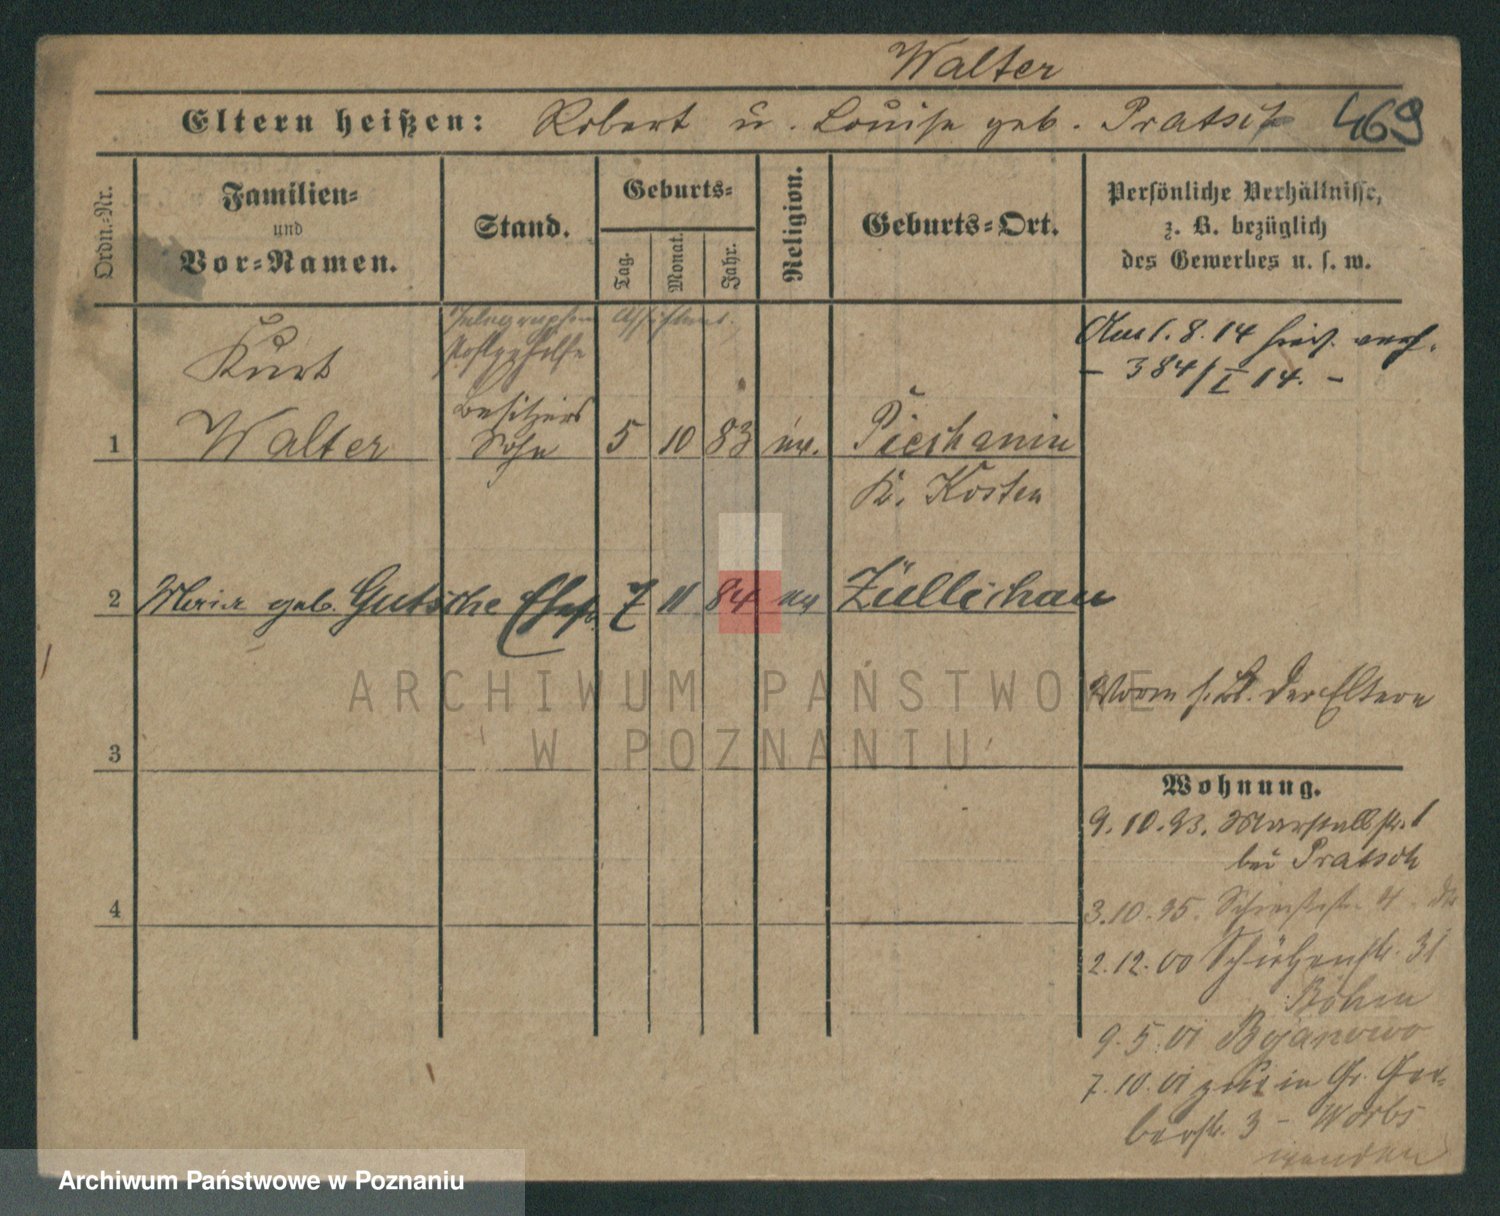 Walter
Eltern heißen: Robert u. Louise geb. Pratsch 469
Ordn.-Nr.
Familien-
und
Vor-Namen.
Stand.
Geburts-
Tag.
Monat.
Jahr.
Religion.
Geburts-Ort.
Persönliche Verhältnisse,
z. B. bezüglich
des Gewerbes u. s. w.
Telegraphen Assistent.
Postgehilfe
Kurt
Besitzers
1 Walter Sohn 5 10 83 ev. Pieschanin
K. Kosten
Am 1. 8. 14
– 384/I 14. –
2 Maria geb. Gutsche Ehefr. 7 11 84 ev Züllichau
Worm s. Bl. der Eltern
3
Wohnung.
9.10.93. Marstallstr. 1
bei Pratsch
4
3.10.95. 4
2.12.00 Schützenstr. 31
Böhm
9.5.01 Bojanowo
7.10.01 zur. in Gr. Ger-
berstr. 3 – Worbs
wenden
ARCHIWUM PAŃSTWOWE
W POZNANIU
Archiwum Państwowe w Poznaniu